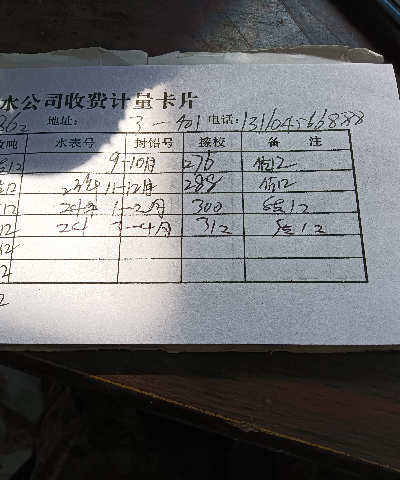 水公司收费计量卡片
862 地址: 3-401 电话:13104566888
收吨 水表号 封铅号 接校 备 注
12 9-10月 276 12
12 23年11-12月 288 12
12 24年 1-2月 300 12
12 24 3-4月 312 12
12
12